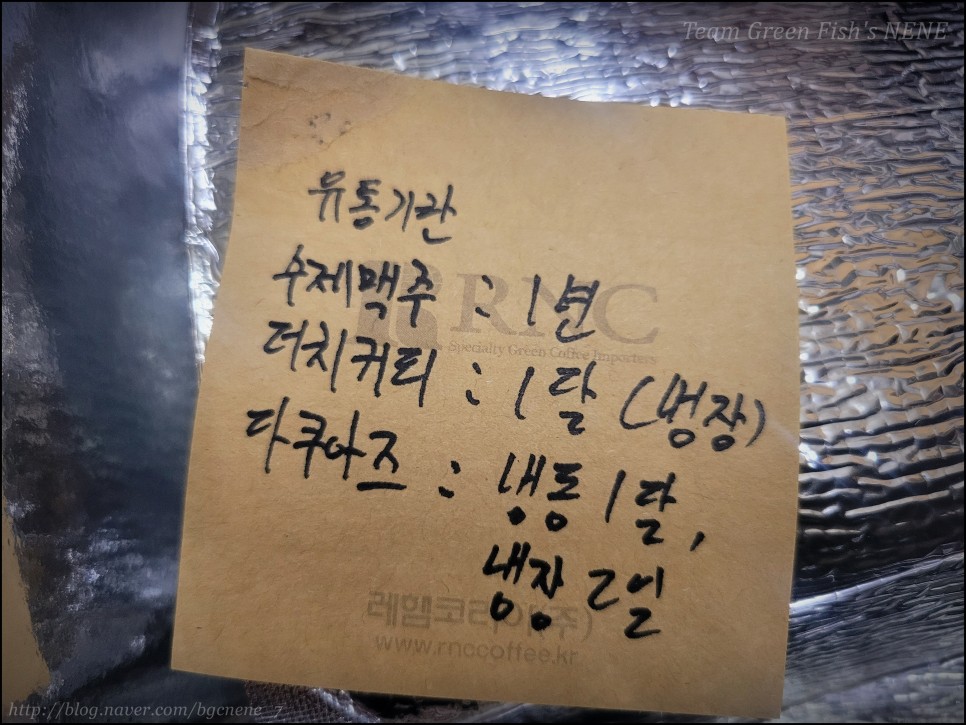 Team Green Fish's NENE
유통기간
수제맥주 : 1년
RNC
Specialty Green Coffee Importers
더치커피 : 1달 (냉장)
다쿠아즈 : 냉동 1달,
냉장 2일
레헴코리아(주)
www.rnccoffee.kr
http://blog.naver.com/bgcnene_7